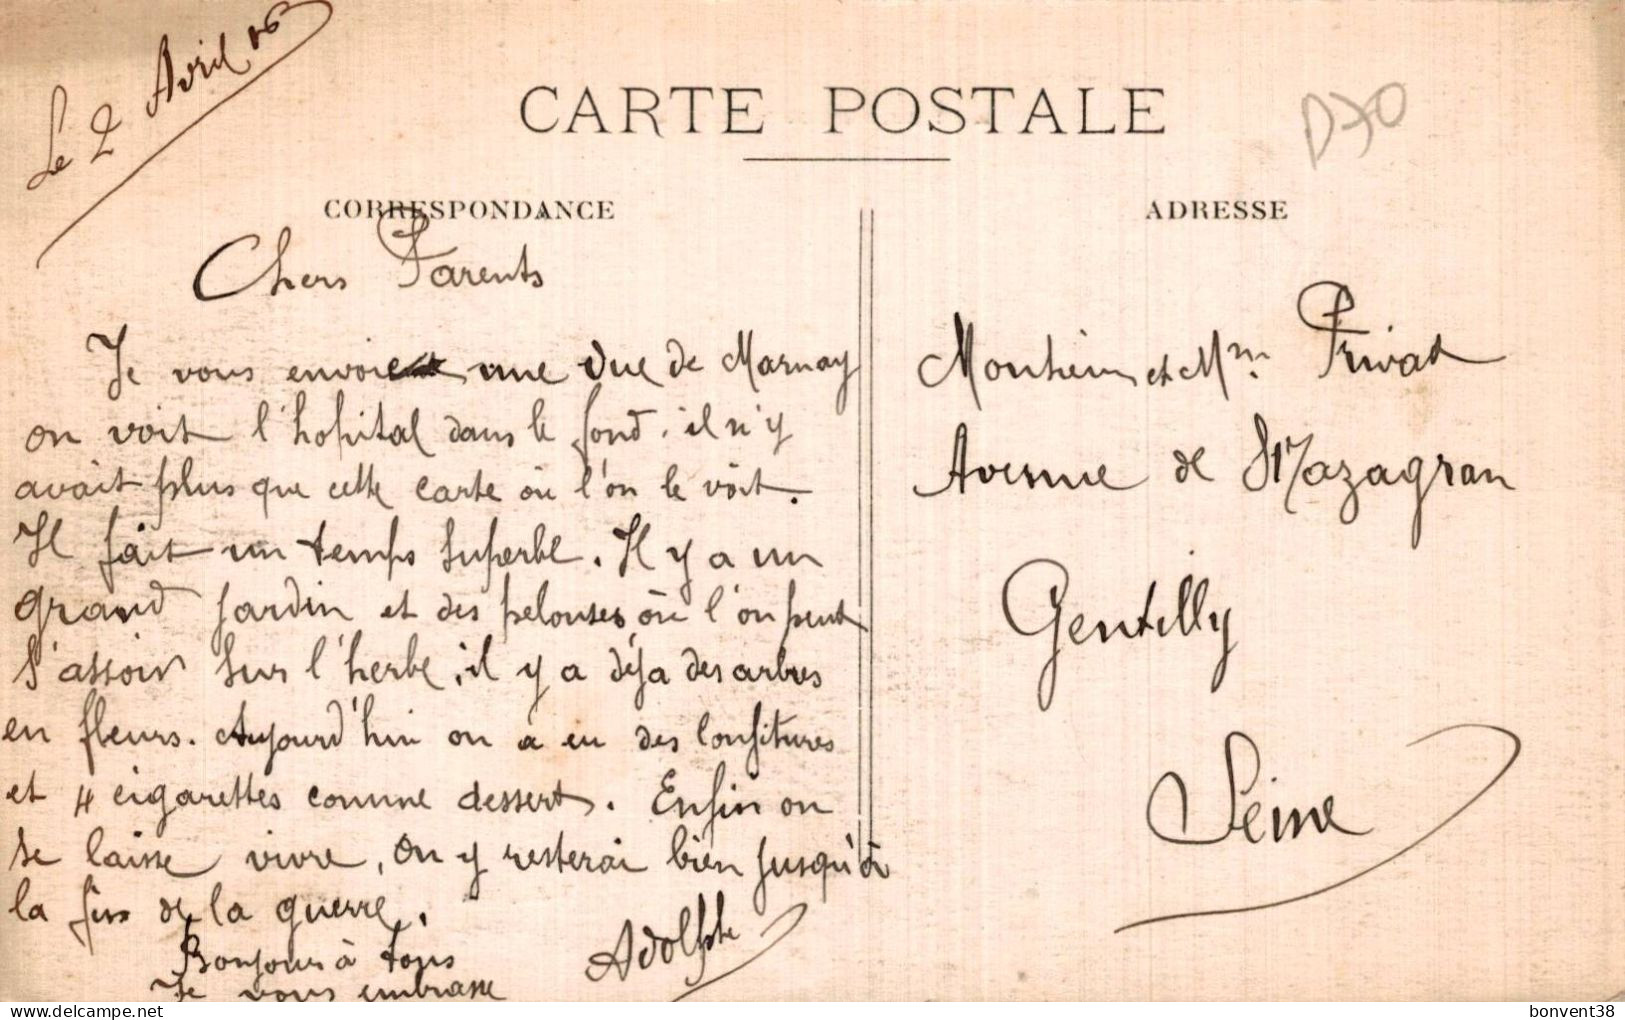 Le 2 Avril 16
CARTE POSTALE
D70
CORRESPONDANCE
Chers Parents
Je vous envoie une vue de Marnay
on voit l'hopital dans le fond. il n'y
avait plus que cette carte où l'on le voit.
Il fait un temps superbe. Il y a un
grand jardin et des pelouses où l'on peut
s'assoir sur l'herbe, il y a déja des arbres
en fleurs. Aujourd'hui on a eu des confitures
et 4 cigarettes comme dessert. Enfin on
se laisse vivre, on y resterai bien jusqu'à
la fin de la guerre.
Bonjour à tous
Je vous embrasse
Adolphe
ADRESSE
Monsieur et Mme Privat
Avenue de Mazagran
Gentilly
Seine
bonvent38